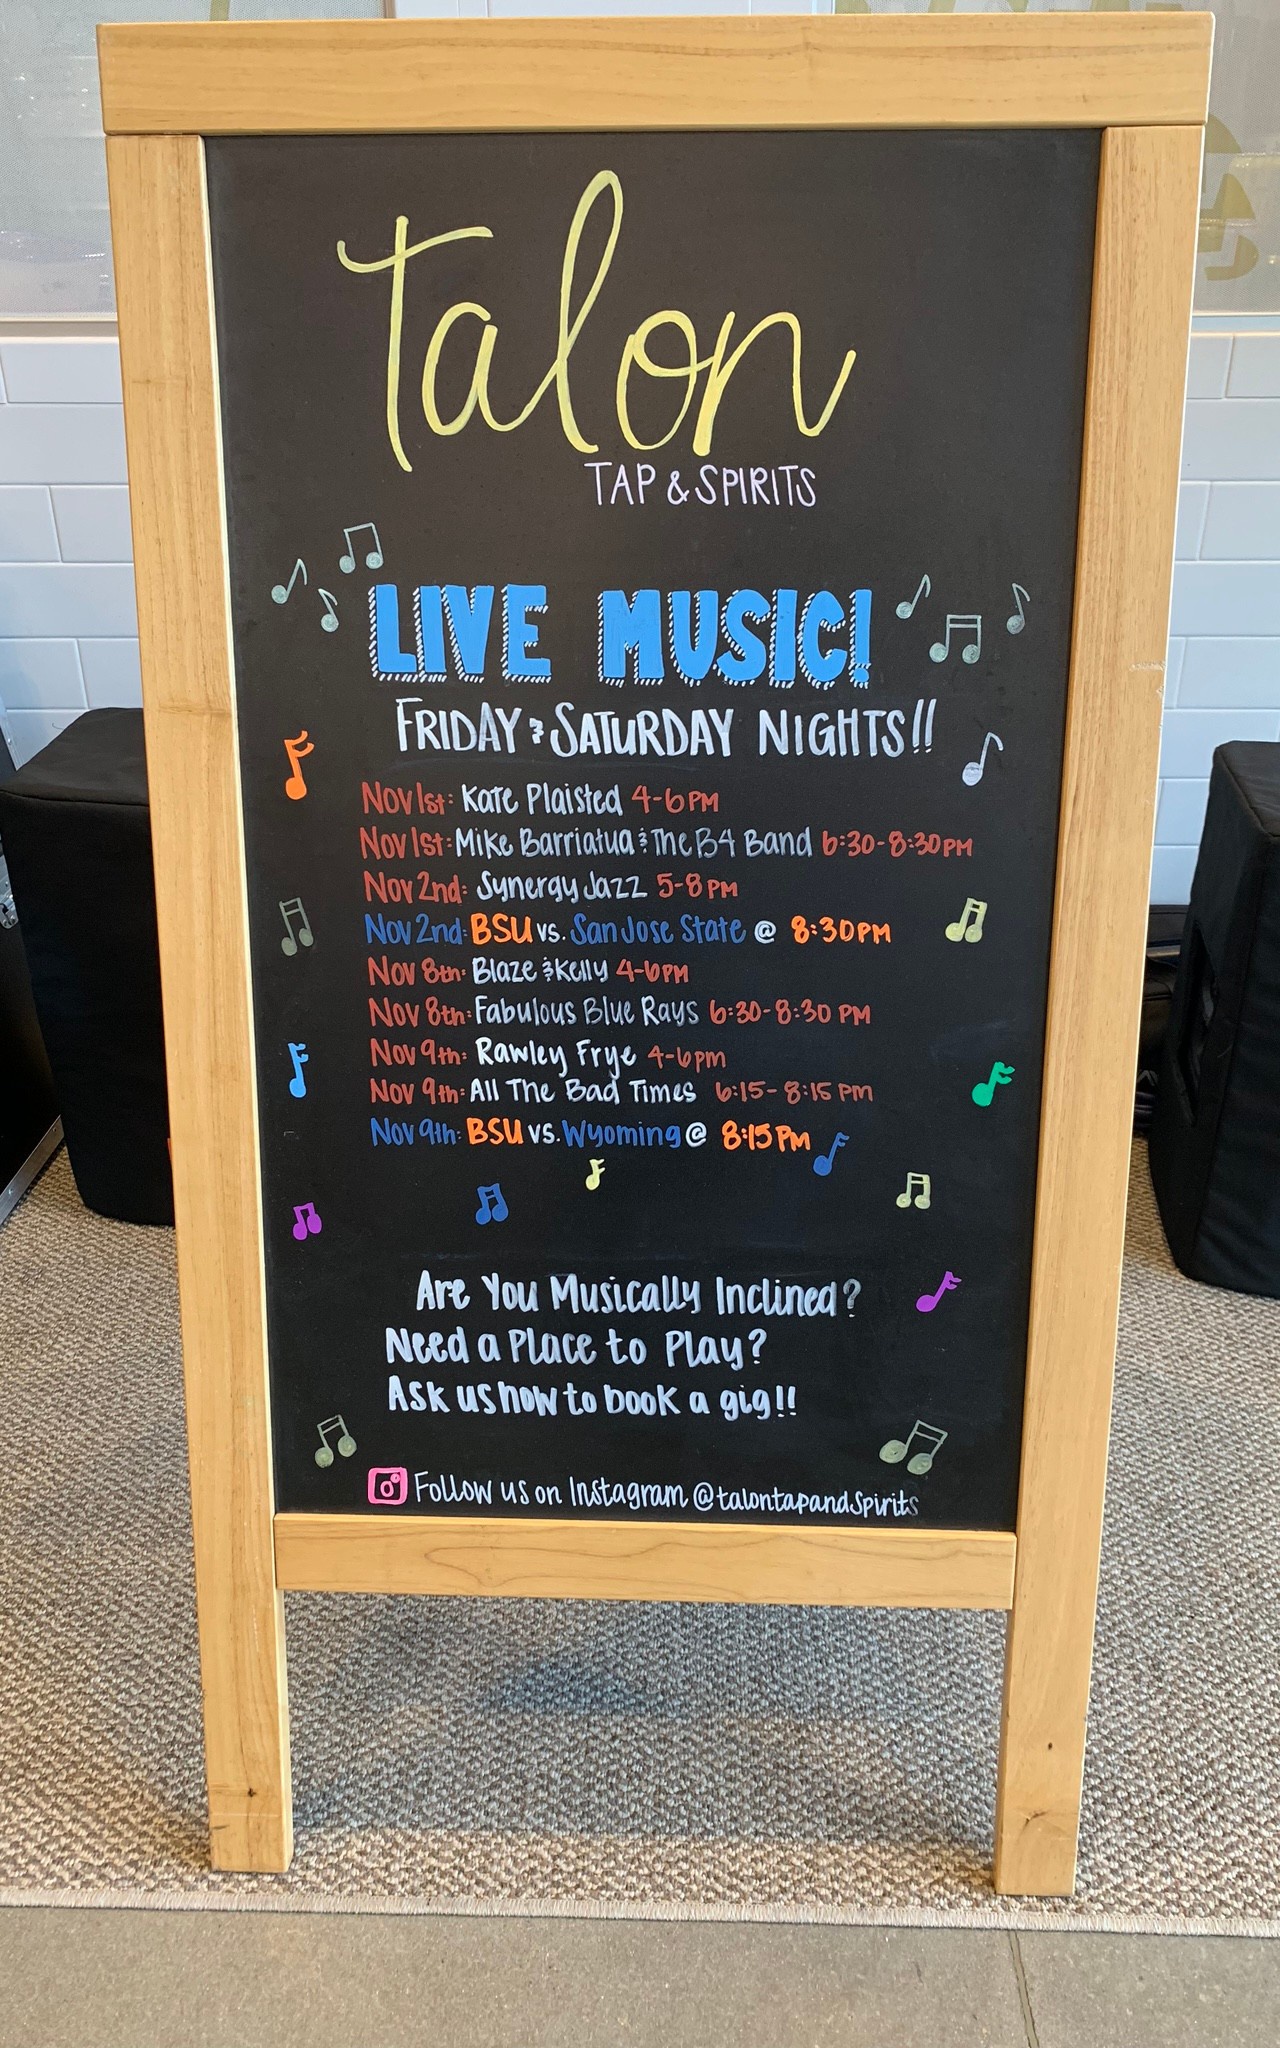 Talon
TAP & SPIRITS
LIVE MUSIC!
FRIDAY & SATURDAY NIGHTS!!
Nov 1st: Kate Plaisted 4-6PM
Nov 1st: Mike Barriatua & The B4 Band 6:30-8:30PM
Nov 2nd: Synergy Jazz 5-8PM
Nov 2nd: BSU vs. San Jose State @ 8:30PM
Nov 8th: Blaze & Kelly 4-6PM
Nov 8th: Fabulous Blue Rays 6:30-8:30 PM
Nov 9th: Rawley Frye 4-6pm
Nov 9th: All The Bad Times 6:15-8:15 PM
Nov 9th: BSU vs. Wyoming @ 8:15PM
Are You Musically Inclined?
Need a Place to Play?
Ask us how to book a gig!!
Follow us on Instagram @talontapandspirits